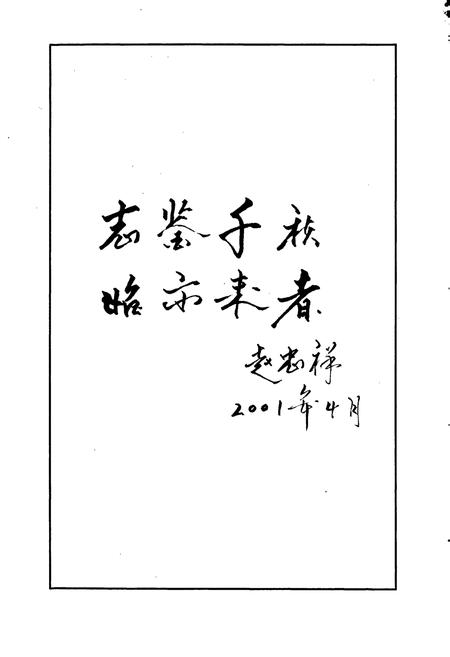 志鉴千秋
昭示来者
赵忠祥
2001年4月